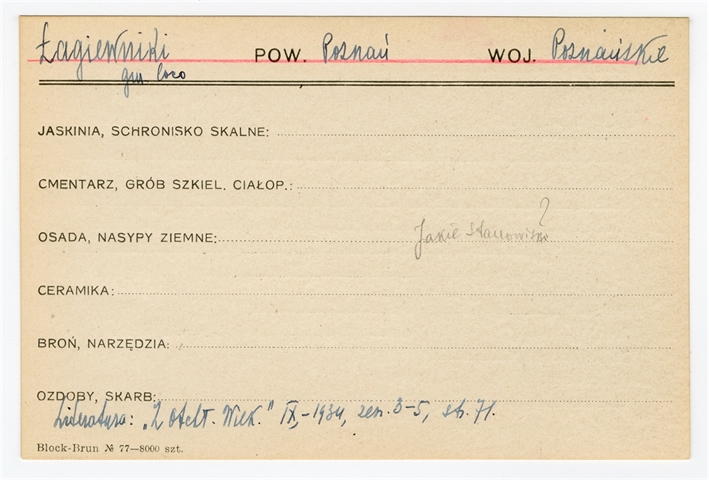 Łagiewniki POW. Poznań WOJ. Poznańskie
gm loco
JASKINIA, SCHRONISKO SKALNE:
CMENTARZ, GRÓB SZKIEL. CIAŁOP.:
?
OSADA, NASYPY ZIEMNE: Jakie stanowisko
CERAMIKA:
BROŃ, NARZĘDZIA:
OZDOBY, SKARB:
Literatura: „Z otchł. Wiek." IX,-1934, zesz. 3-5, str. 71.
Block-Brun № 77—8000 szt.